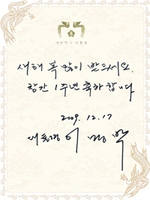 새해 복 많이 받으세요.
창간 1주년 축하 합니다.
2009. 12. 17
대통령 이 명 박